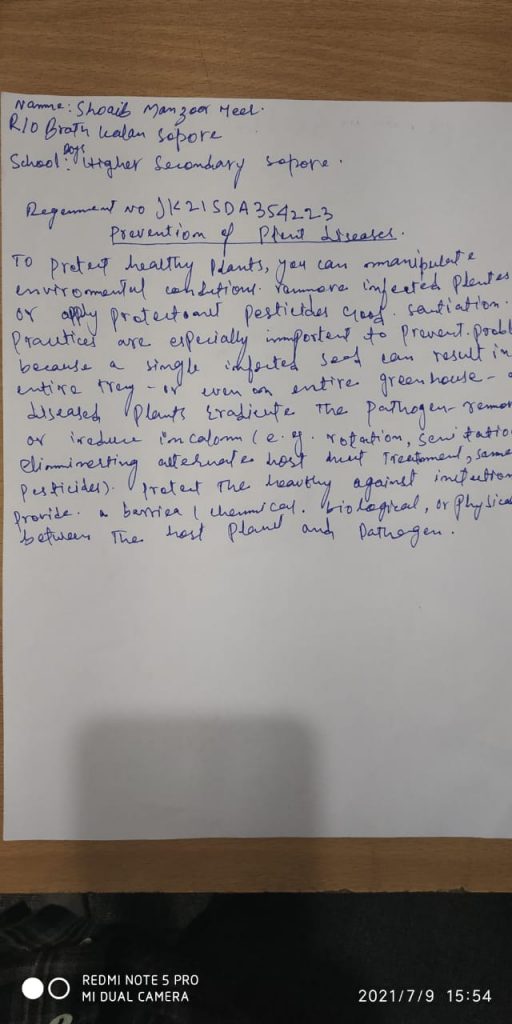 Namme: Shoaib Manzoor Meel.
R/O Brath Kalan Sopore
School: Boys Higher Secondary Sopore.
Regemment No JK21SDA354223
Prevention of Plant diseases.
To Protect healthy Plants, you can mmanipulate
enviromental conditions. remmove infected Plantes
or apply protectant pesticides Good. sanitation.
Practices are especially immportent to Prevent. probl
because a single infected seed can result in
entire trey - or even an entire greenhouse -
diseased Plants Eradicate The Pathogen - remov
or ireduce (e.g. rotation, sanitation
elimminesting alternate host heet Treatment, same
Pesticides). Protect The healthy against infection
Provide. a barrier (chemical. biological, or Physica
between The host Plant and Pathogen.
REDMI NOTE 5 PRO
MI DUAL CAMERA
2021/7/9 15:54